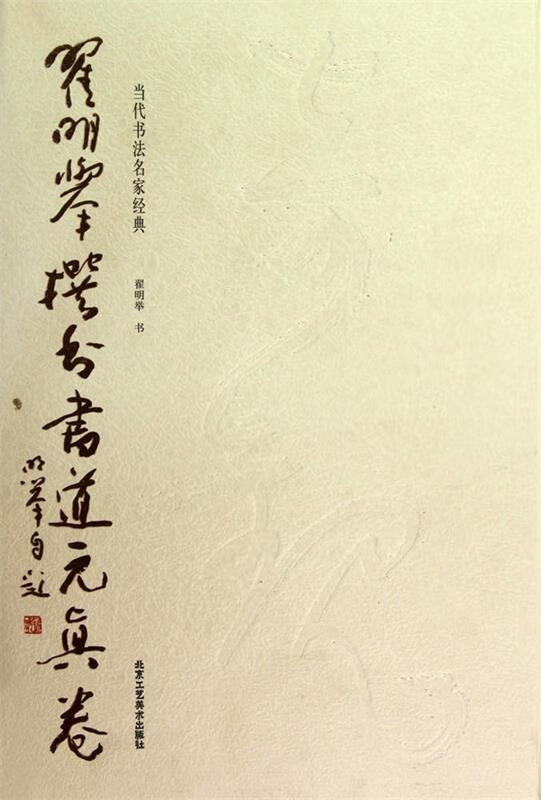 当代书法名家经典
翟明举 书
北京工艺美术出版社
翟明举撰书书道元真卷
明举自题